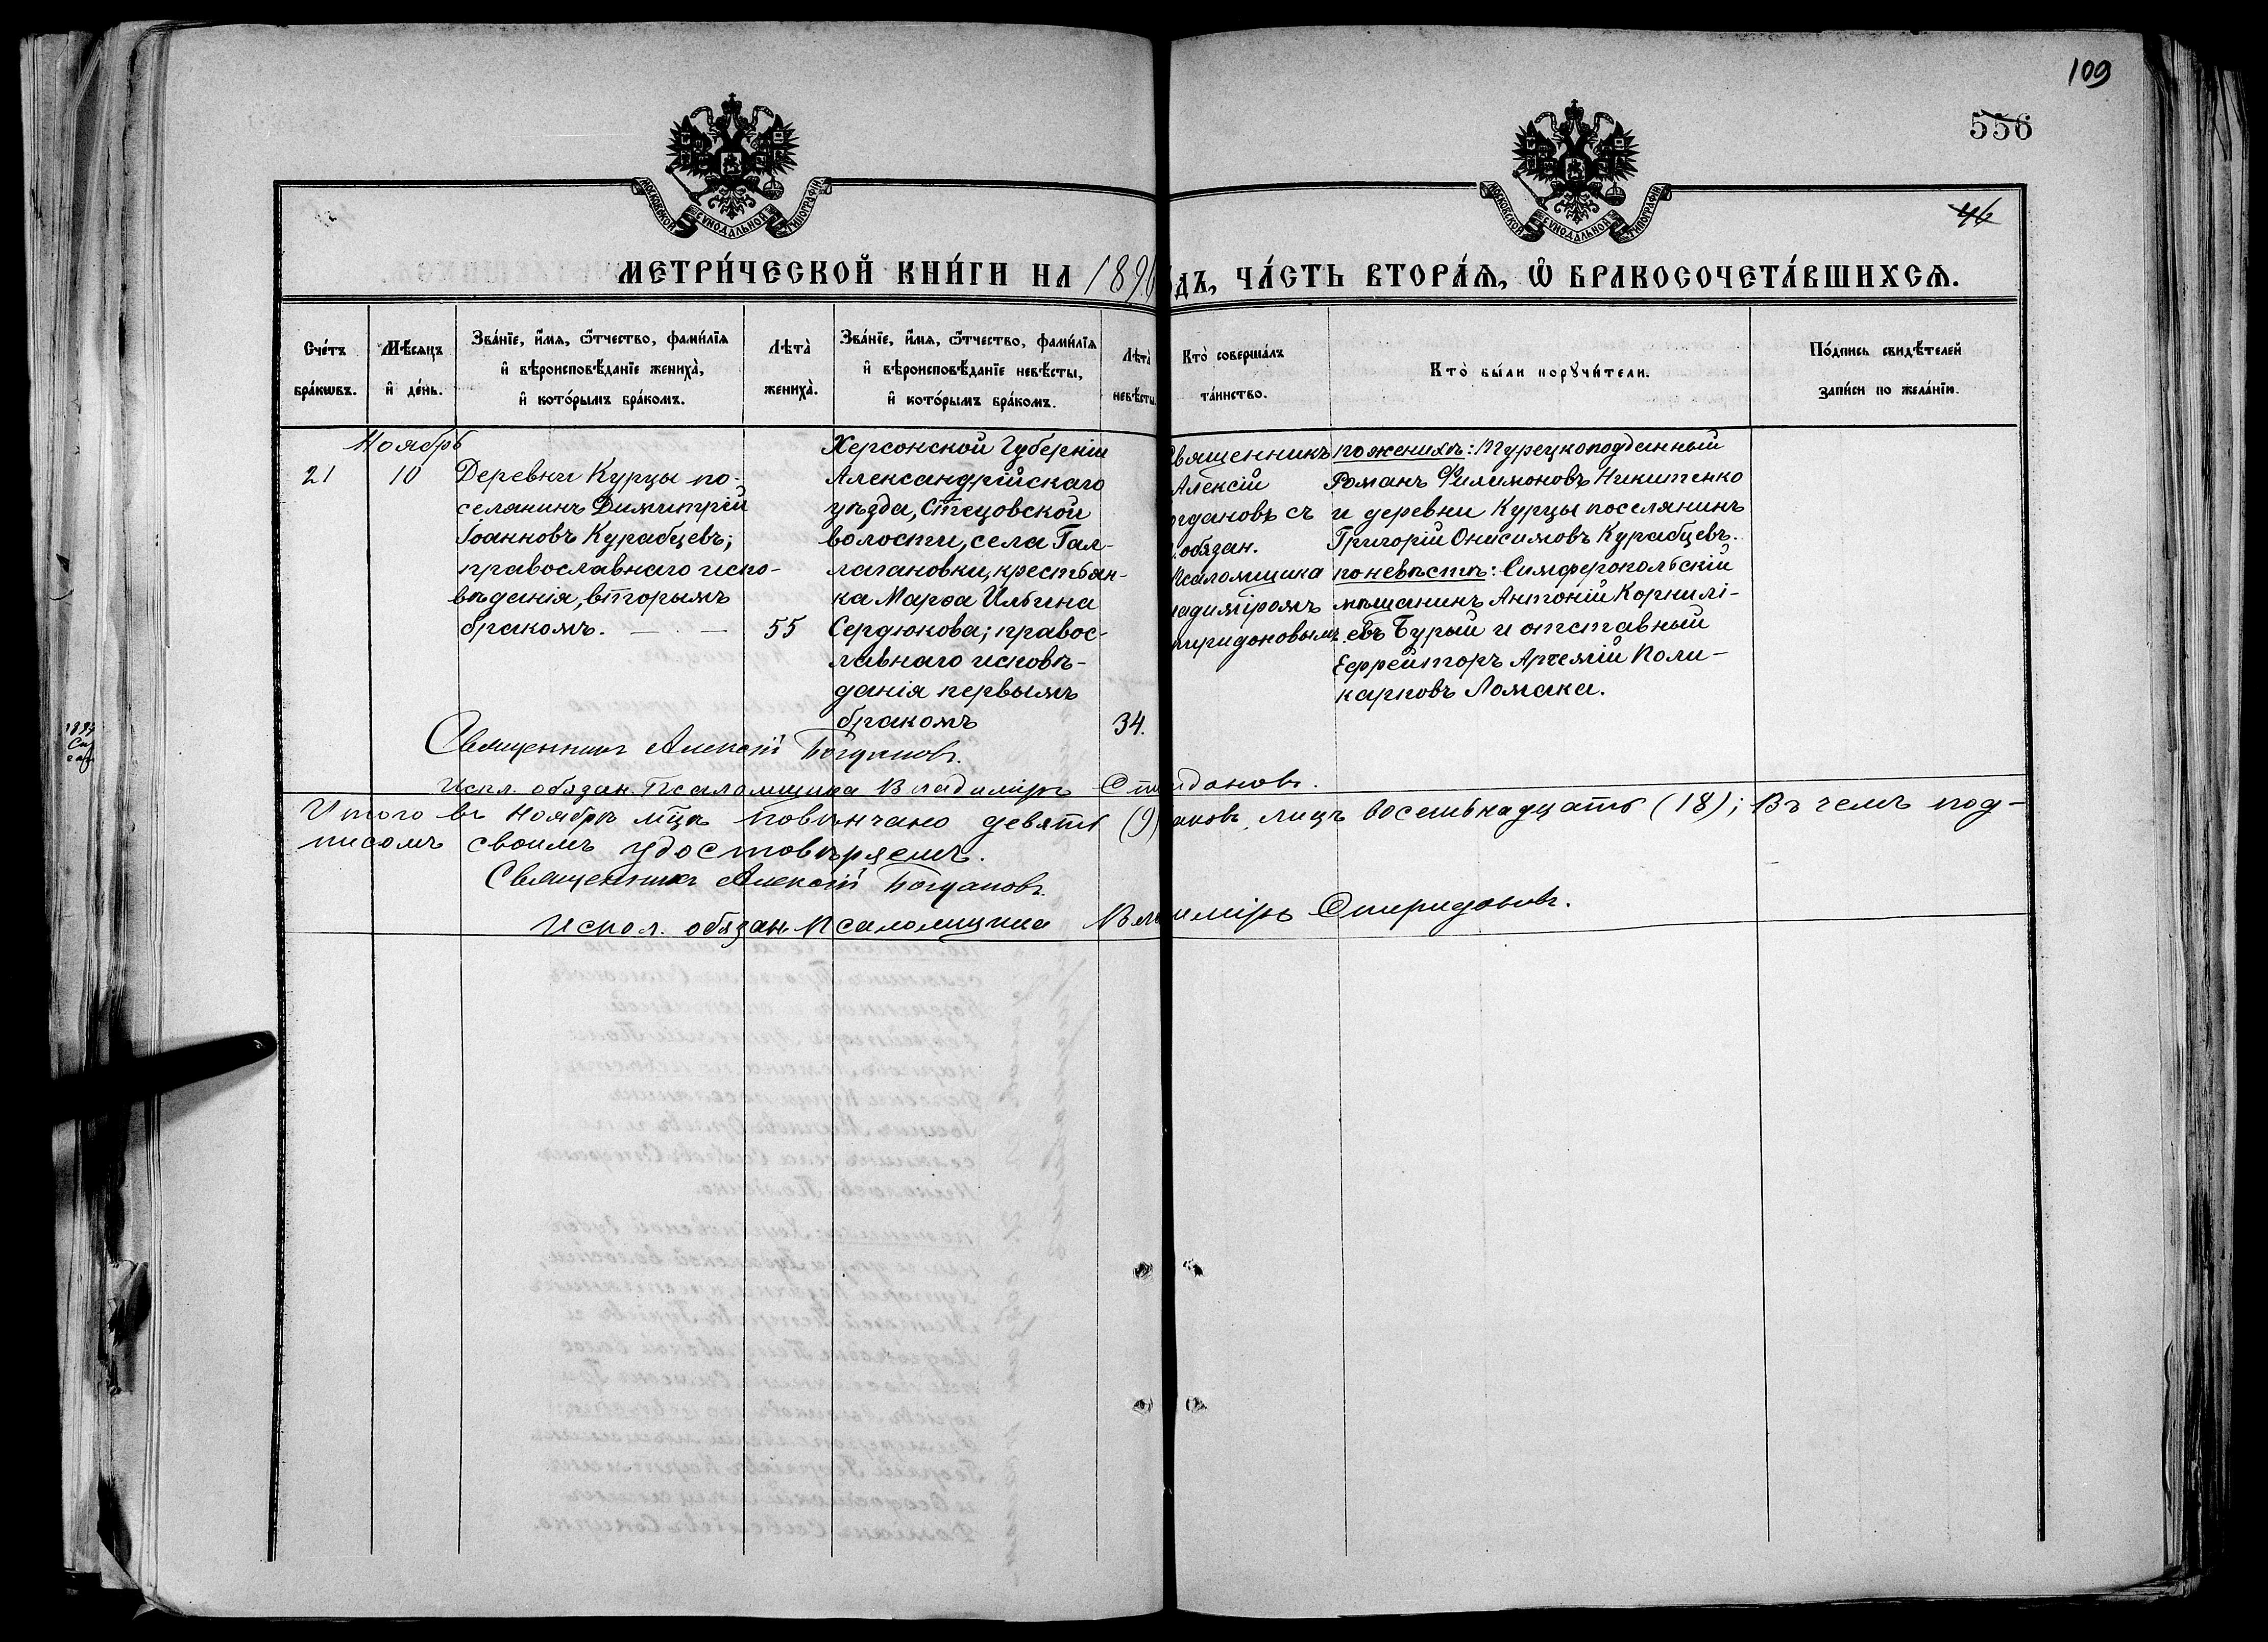 109
556
46
МОСКОВСКОЙ СУНОДАЛЬНОЙ ТИПОГРАФІИ
МОСКОВСКОЙ СУНОДАЛЬНОЙ ТИПОГРАФІИ
МЕТРИ́ЧЕСКОЙ КНИ́ГИ НА 1896 дъ, ЧА́СТЬ ВТОРА́Ѧ, Ѽ БРАКОСОЧЕТА́ВШИХСѦ.
Сче́тъ
бра́кѡвъ.
Мѣ́сѧцъ
и҆ де́нь.
Зва́нїе, и҆́мѧ, ѻ҆́тчество, фами́лїѧ
и҆ вѣроисповѣ́данїе жениха̀,
и҆ кото́рымъ бра́комъ.
Лѣта̀
жениха̀.
Зва́нїе, и҆́мѧ, ѻ҆́тчество, фами́лїѧ
и҆ вѣроисповѣ́данїе невѣ́сты,
и҆ кото́рымъ бра́комъ.
Лѣта̀
невѣ́сты.
Кто̀ соверша́лъ
та́инство.
Кто̀ бы́ли порꙋчи́тели.
По́дпись свидѣ́телей
за́писи по жела́нїю.
Ноябрь
21
10
Деревни Курцы по-
селянинъ Димитрій
Іоанновъ Курабцевъ;
православнаго испо-
вѣданія, вторымъ
бракомъ. — . —
55
Херсонской Губерніи
Александрійскаго
уѣзда, Стецовской
волости, села Гал-
лагановки, крестьян-
ка Марѳа Ильина
Сердюкова; правос-
лавнаго исповѣ-
данія первымъ
бракомъ
34.
вященникъ
Алексій
огдановъ съ
. обязан.
Псаломщика
ладиміромъ
пиридоновымъ.
по женихѣ: Турецкоподданный
Романъ Филимоновъ Никитенко
и деревни Курцы поселянинъ
Григорій Онисимовъ Курабцевъ.
по невѣстѣ: Симферопольскій
мѣщанинъ Антоній Корнилі-
евъ Бурый и отставный
Ефрейторъ Артемій Поли-
карповъ Ломака.
Священникъ Алексій Богдановъ.
Испл. обязан. Псаломщика Владиміръ Спи идоновъ.
Итого въ Ноябрѣ мцѣ повѣнчано девять (9) аковъ, лицъ восемьнадцать (18); Въ чемъ под-
писомъ своимъ удостовѣряемъ.
Священникъ Алексій Богдановъ.
Испол. обязан. Псаломщика Вла иміръ Спиридоновъ.